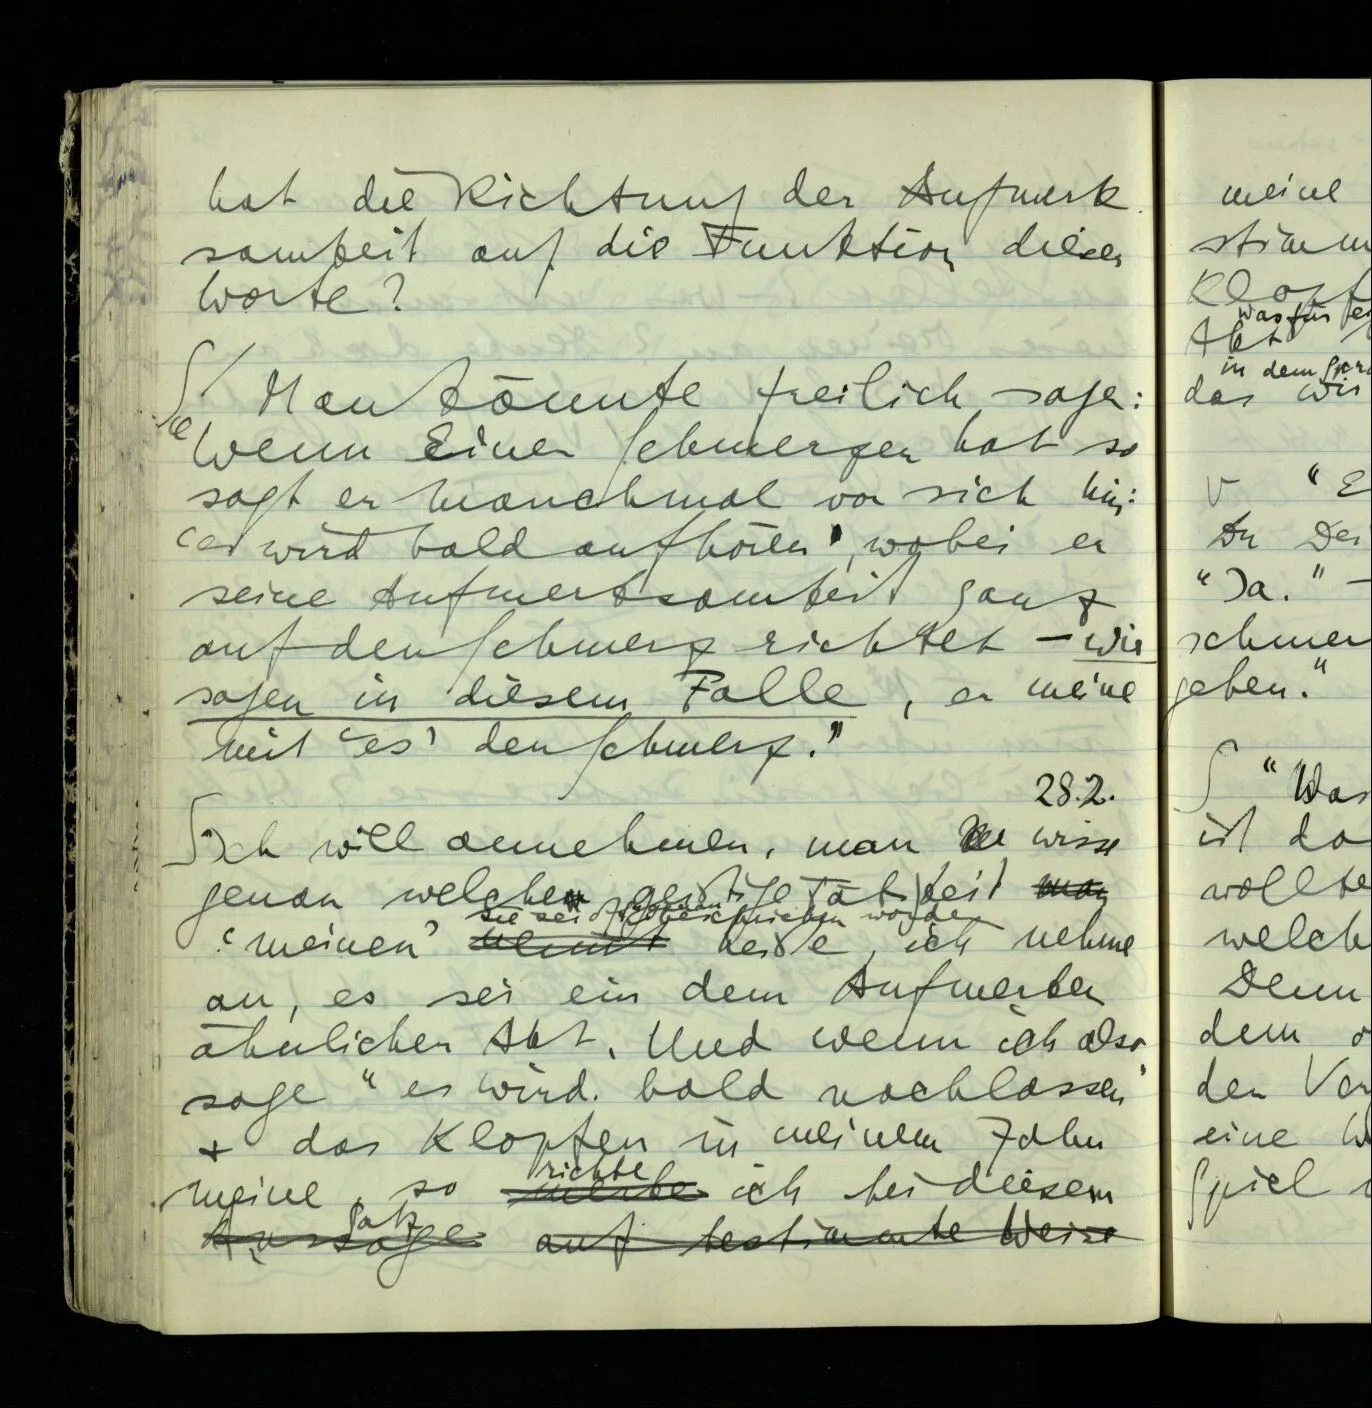 hat die Richtung der Aufmerk
samkeit auf die Funktion dieser
Worte?
∫/ Man könnte freilich sagen:
"Wenn Einer Schmerzen hat so
sagt er manchmal vor sich hin:
'es wird bald aufhören', wobei er
seine Aufmerksamkeit ganz
auf den Schmerz richtet – wir
sagen in diesem Falle, er meine
mit 'es' den Schmerz."
28.2.
∫ Ich will annehmen, man wisse
genau welche geistige Tätigkeit man
sie sei genau beschrieben worden
'meinen' nennt heiße, ich nehme
an, es sei ein dem Aufmerken
ähnlicher Akt. Und wenn ich also
sage "es wird bald nachlassen"
+ das Klopfen in meinem Zahn
richte
meine, so merke ich bei diesem
Satz
Aussage auf bestimmte Weise
meine
stimm
Klopf
was für ei
Akt
in dem Spra
das wir
V "E
An Der
"Ja." –
schmer
geben."
∫ "Was
ist da
wollte
welch
Denn
dem
den Vor
eine W
Spiel